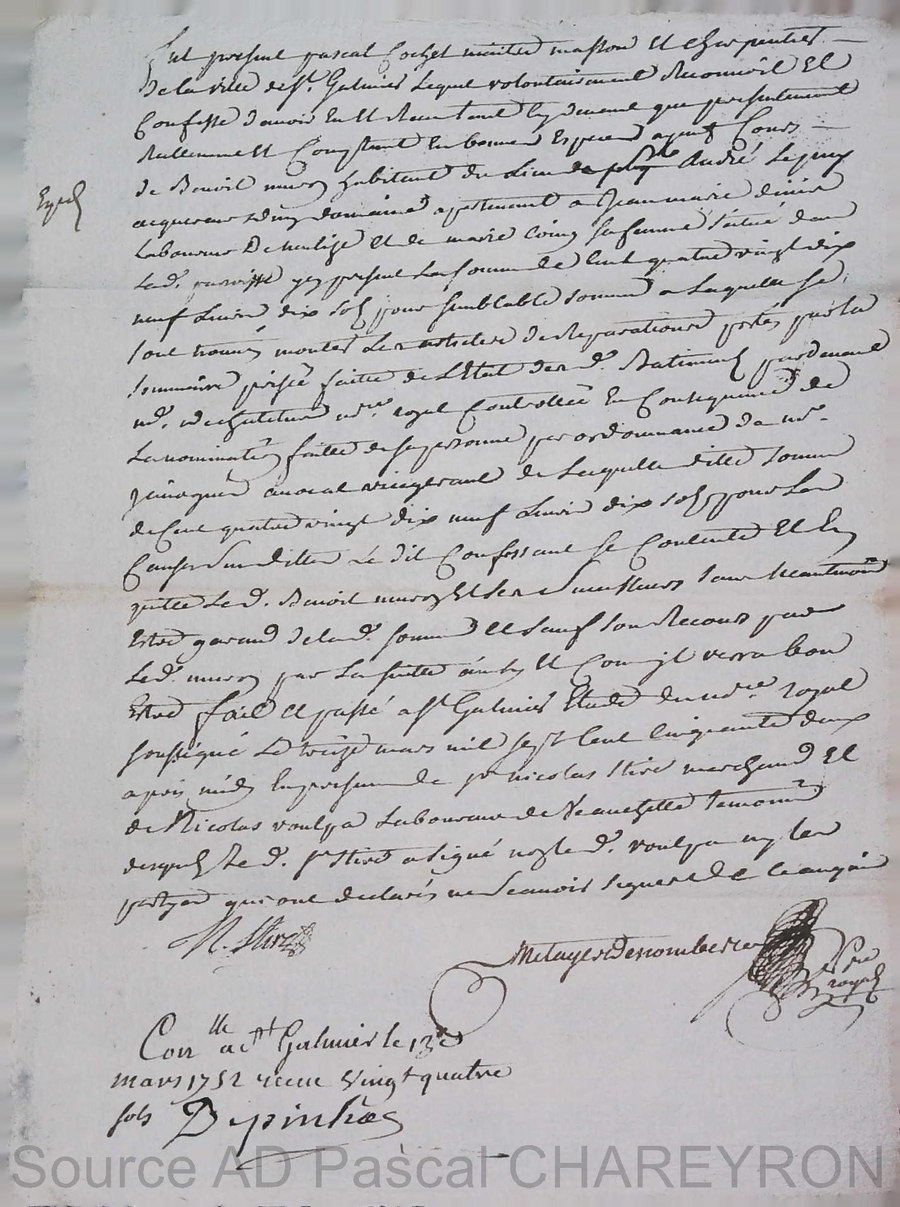 fut present pascal Cochet maitre masson Et charpentier
de la ville de st. Galmier Lequel volontairement Reconnoit Et
Confesse d'avoir Eu Et Receu tant cydevant que presentement
Reellement Et Comptant En bonnes Especes ayant Cours
de Benoit muron habitant du Lieu André Le puy
Expedié
acquereur d'un domaine apartenant a Jean marie
Laboureur De Et de marie sa femme situé dans
Lad. parroisse present La somme de Cent quatre vingt dix
neuf Livres dix sols pour semblable somme a Laquelle se
sont trouvés montés Les articles de Reparations portés par la
sommaire prisée faitte de L'Etat des d. Batiments pardevant
md. nore. royal Controllée En Consequence de
La nomination faitte de sa personne par ordonnance de mr.
avocat vicegerant de Laquelle ditte somme
de Cent quatre vingt dix neuf Livres dix sols pour Les
Causes surdittes Le dit Confessant se Contente Et En
quitte Led. Benoit muron Et ses successeurs
Estre garand de lad. somme Et sauf son Recours pour
Led. muron par La suitte ainsy Et Comme jl verra bon
Estre fait Et passé a st. Galmier Etude du nore. royal
soussigné Le treize mars mil sept Cent Cinquante deux
apres midy En presence de sr nicolas Stire marchand Et
de Nicolas voulpa Laboureur de Veauchette temoins
desquels Le d. sr Stire a signé non Le d. voulpa ny Les
parties qui ont declarés ne scavoir signer de ce
N. Stire
Metayer Desnombere
nore
royal
Conlle a st Galmier le 13e
mars 1752 receu vingt quatre
sols Depinhac
Source AD Pascal CHAREYRON